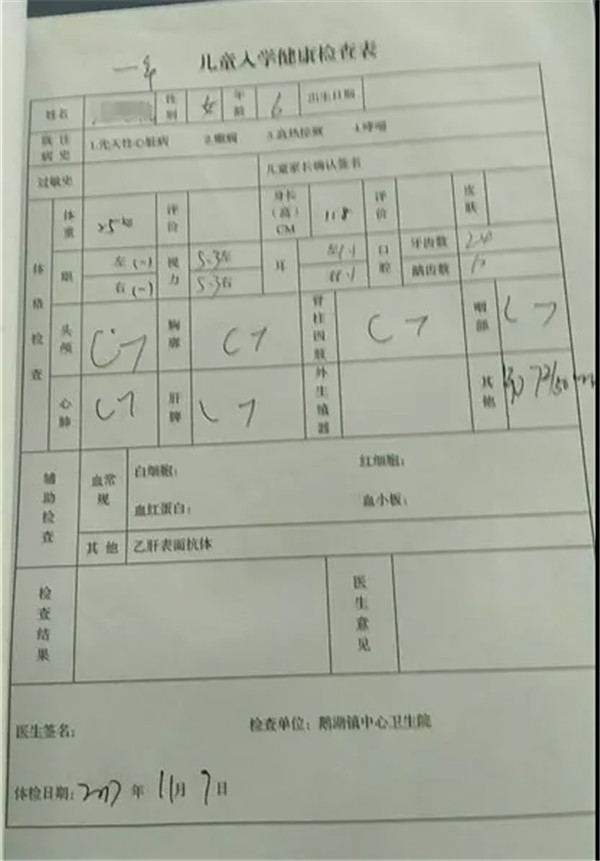 一年 儿童入学健康检查表
姓名 性别 女 年龄 6 出生日期
既往病史 1.先天性心脏病 2.癫痫 3.高热惊厥 4.哮喘
过敏史 儿童家长确认签名
体格检查 体重 25kg 评价 身长(高)CM 118 评价 皮肤
眼 左(-) 视力 5.3左 耳 左(-) 口腔 牙齿数 24
右(-) 5.3右 右(-) 龋齿数
头颅 (-) 胸廓 (-) 脊柱四肢 (-) 咽部 (-)
心肺 (-) 肝脾 (-) 外生殖器 其他
辅助检查 血常规 白细胞: 红细胞:
血红蛋白: 血小板:
其他 乙肝表面抗体
检查结果 医生意见
医生签名: 检查单位: 鹅湖镇中心卫生院
体检日期: 2017 年 11月 7日